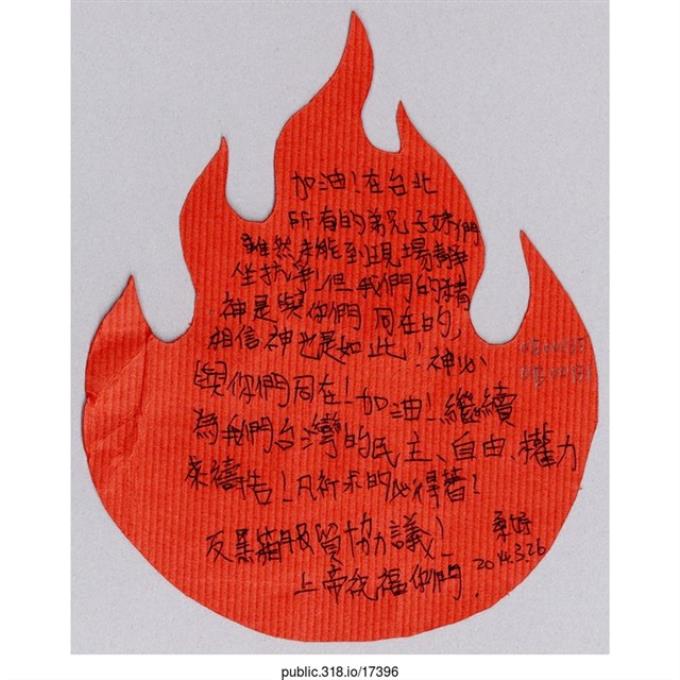 加油!在台北
所有的弟兄子妹們
雖然未能到現場靜
坐抗爭,但我們的精
神是與你們同在的,
相信神也是如此!神必
與你們同在!加油!繼續
為我們台灣的民主、自由、權力
來禱告!凡祈求的必得著!
反黑箱服貿協議!
2014.3.26
上帝祝福你們.
public.318.io/17396